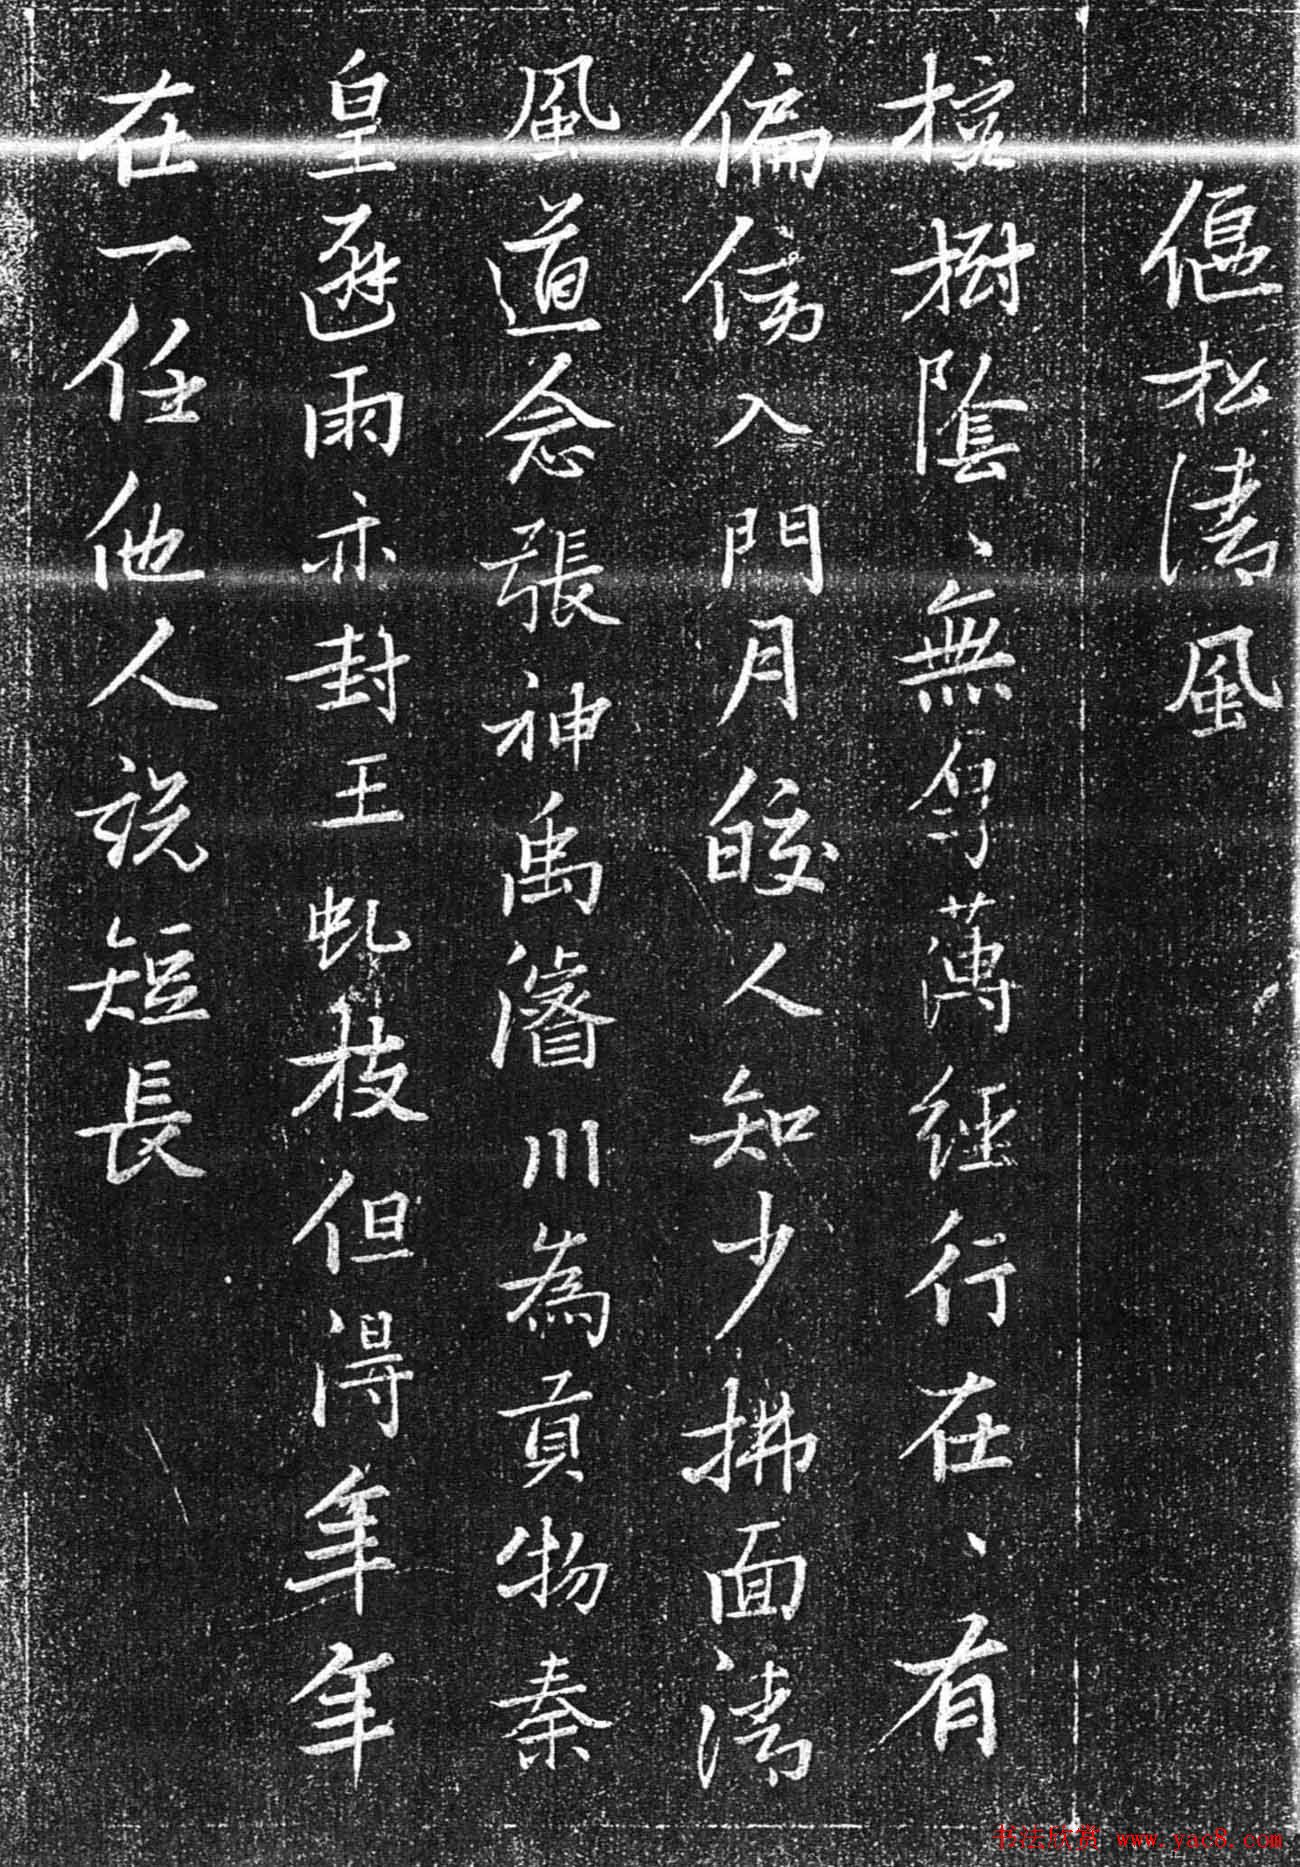 偃松清風
樹陰、無萬經行在、有
偏傍入門月皎人知少拂面清
風道念張神禹濬川為貢物秦
皇避雨亦封王虬枝但得年年
在一任他人説短長
书法欣赏 www.yac8.com